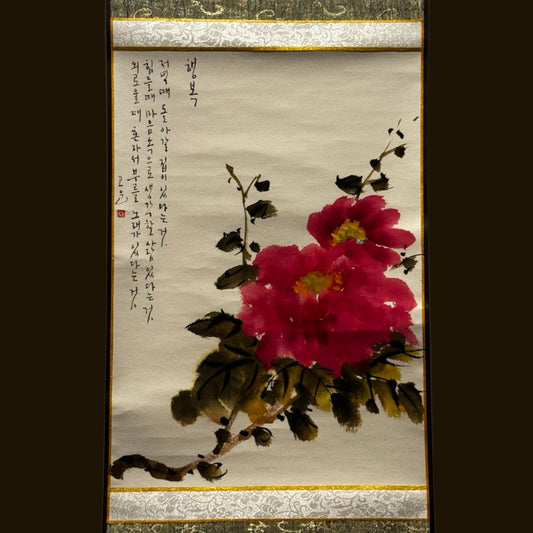 행복
저녁때 돌아갈 집이 있다는 것.
힘들때 마음속으로 생각할 사람 있다는 것.
외로울때 혼자서 부를 노래가 있다는 것.